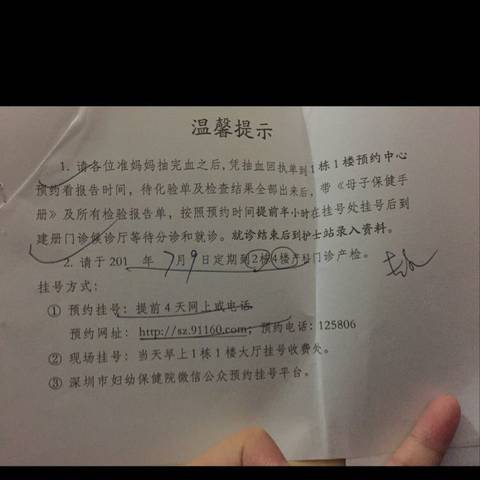 温馨提示
1. 请各位准妈妈抽完血之后，凭抽血回执单到1栋1楼预约中心
预约看报告时间，待化验单及检查结果全部出来后，带《母子保健手
册》及所有检验报告单，按照预约时间提前半小时在挂号处挂号后到
建册门诊候诊厅等待分诊和就诊。就诊结束后到护士站录入资料。
2. 请于201 年7月9日定期到2栋4楼产科门诊产检。
挂号方式：
① 预约挂号：提前4天网上或电话
预约网址：http://sz.91160.com；预约电话：125806
② 现场挂号：当天早上1栋1楼大厅挂号收费处。
③ 深圳市妇幼保健院微信公众预约挂号平台。